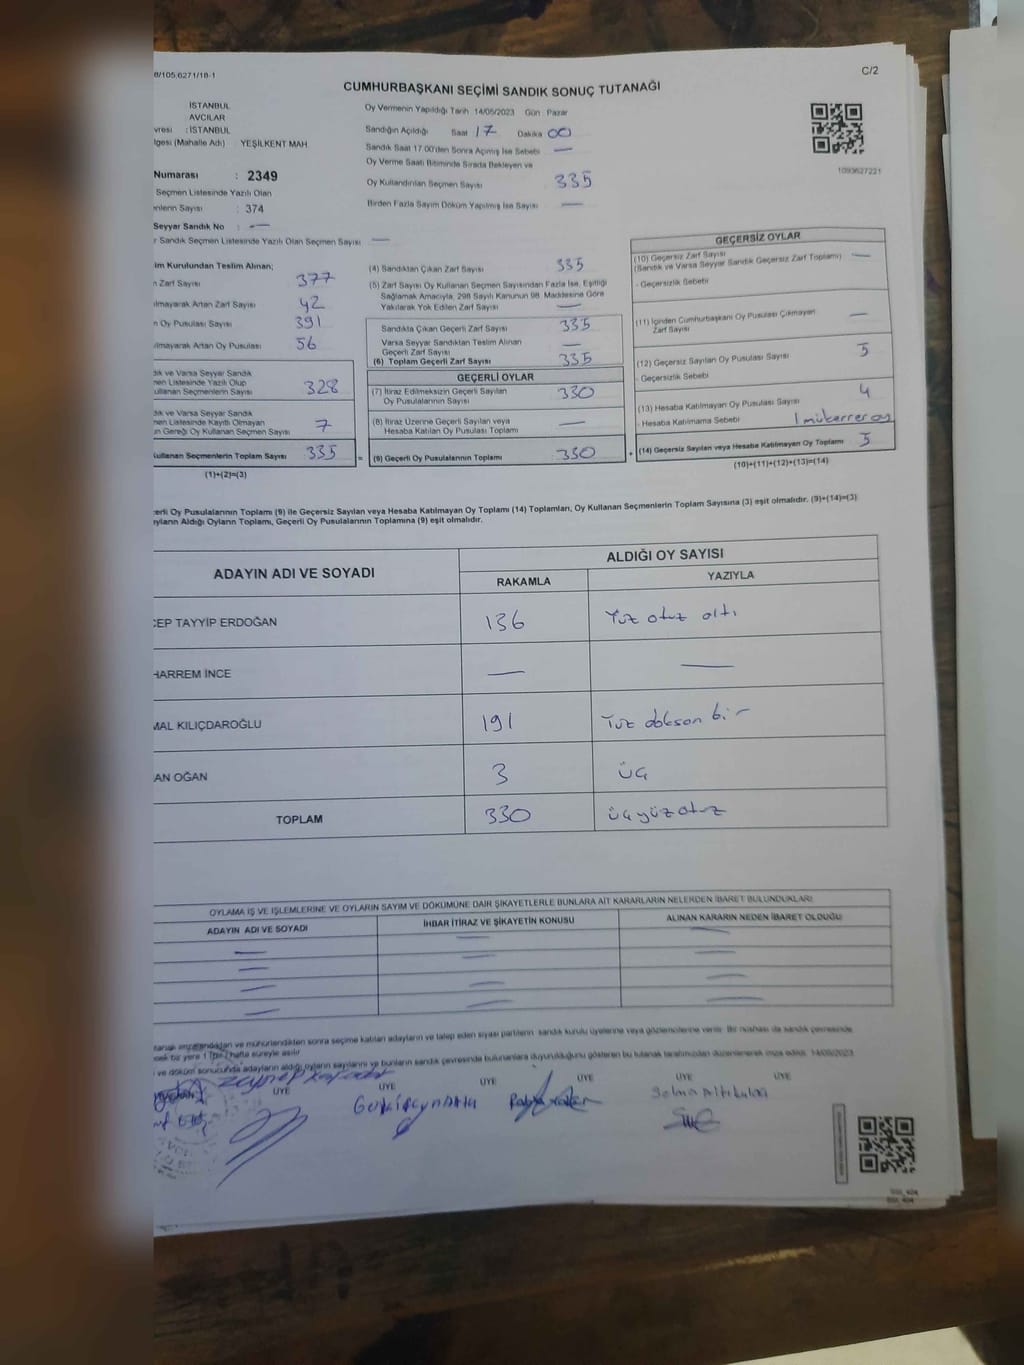 8/105.6271/18-1
C/2
CUMHURBAŞKANI SEÇİMİ SANDIK SONUÇ TUTANAĞI
İSTANBUL
AVCILAR
vresi : İSTANBUL
lgesi (Mahalle Adı) YEŞİLKENT MAH
Numarası : 2349
Seçmen Listesinde Yazılı Olan
enlerin Sayısı : 374
Seyyar Sandık No : —
r Sandık Seçmen Listesinde Yazılı Olan Seçmen Sayısı —
Oy Vermenin Yapıldığı Tarih 14/05/2023 Gün Pazar
Sandığın Açıldığı Saat 17 Dakika 00
Sandık Saat 17.00'den Sonra Açılmış İse Sebebi —
Oy Verme Saati Bitiminde Sırada Bekleyen ve
Oy Kullandırılan Seçmen Sayısı 335
Birden Fazla Sayım Döküm Yapılmış İse Sayısı —
1093627221
im Kurulundan Teslim Alınan;
n Zarf Sayısı 377
ılmayarak Artan Zarf Sayısı 42
n Oy Pusulası Sayısı 391
ılmayarak Artan Oy Pusulası 56
dık ve Varsa Seyyar Sandık
men Listesinde Yazılı Olup
ullanan Seçmenlerin Sayısı 328
dık ve Varsa Seyyar Sandık
men Listesinde Kayıtlı Olmayan
un Gereği Oy Kullanan Seçmen Sayısı 7
ullanan Seçmenlerin Toplam Sayısı 335 =
(1)+(2)=(3)
(4) Sandıktan Çıkan Zarf Sayısı 335
(5) Zarf Sayısı Oy Kullanan Seçmen Sayısından Fazla İse, Eşitliği
Sağlamak Amacıyla, 298 Sayılı Kanunun 98. Maddesine Göre
Yakılarak Yok Edilen Zarf Sayısı —
Sandıkta Çıkan Geçerli Zarf Sayısı 335
Varsa Seyyar Sandıktan Teslim Alınan
Geçerli Zarf Sayısı —
(6) Toplam Geçerli Zarf Sayısı 335
GEÇERLİ OYLAR
(7) İtiraz Edilmeksizin Geçerli Sayılan
Oy Pusulalarının Sayısı 330
(8) İtiraz Üzerine Geçerli Sayılan veya
Hesaba Katılan Oy Pusulası Toplamı —
(9) Geçerli Oy Pusulalarının Toplamı 330 +
GEÇERSİZ OYLAR
(10) Geçersiz Zarf Sayısı
(Sandık ve Varsa Seyyar Sandık Geçersiz Zarf Toplamı) —
- Geçersizlik Sebebi
(11) İçinden Cumhurbaşkanı Oy Pusulası Çıkmayan
Zarf Sayısı —
(12) Geçersiz Sayılan Oy Pusulası Sayısı 5
- Geçersizlik Sebebi
(13) Hesaba Katılmayan Oy Pusulası Sayısı 4
- Hesaba Katılmama Sebebi 1 mükerrer oy
(14) Geçersiz Sayılan veya Hesaba Katılmayan Oy Toplamı 5
(10)+(11)+(12)+(13)=(14)
erli Oy Pusulalarının Toplamı (9) ile Geçersiz Sayılan veya Hesaba Katılmayan Oy Toplamı (14) Toplamları, Oy Kullanan Seçmenlerin Toplam Sayısına (3) eşit olmalıdır. (9)+(14)=(3)
ayların Aldığı Oyların Toplamı, Geçerli Oy Pusulalarının Toplamına (9) eşit olmalıdır.
ADAYIN ADI VE SOYADI ALDIĞI OY SAYISI
RAKAMLA YAZIYLA
CEP TAYYİP ERDOĞAN 136 Yüz otuz altı
HARREM İNCE — —
MAL KILIÇDAROĞLU 191 Yüz doksan bir
AN OĞAN 3 üç
TOPLAM 330 üçyüzotuz
OYLAMA İŞ VE İŞLEMLERİNE VE OYLARIN SAYIM VE DÖKÜMÜNE DAİR ŞİKAYETLERLE BUNLARA AİT KARARLARIN NELERDEN İBARET BULUNDUKLARI
ADAYIN ADI VE SOYADI İHBAR İTİRAZ VE ŞİKAYETİN KONUSU ALINAN KARARIN NEDEN İBARET OLDUĞU
— — —
— — —
— — —
— — —
imzalandıktan ve mühürlendikten sonra seçime katılan adayların ve talep eden siyasi partilerin sandık kurulu üyelerine veya gözlemcilerine verilir. Bir nüshası da sandık çevresinde
bir yere 1 (bir) hafta süreyle asılır.
ve döküm sonucunda adayların aldığı oyların sayılarını ve bunların sandık çevresinde bulunanlara duyurulduğunu gösteren bu tutanak tarafımızdan düzenlenerek imza edildi. 14/05/2023
ÜYE ÜYE ÜYE ÜYE ÜYE ÜYE
Selma